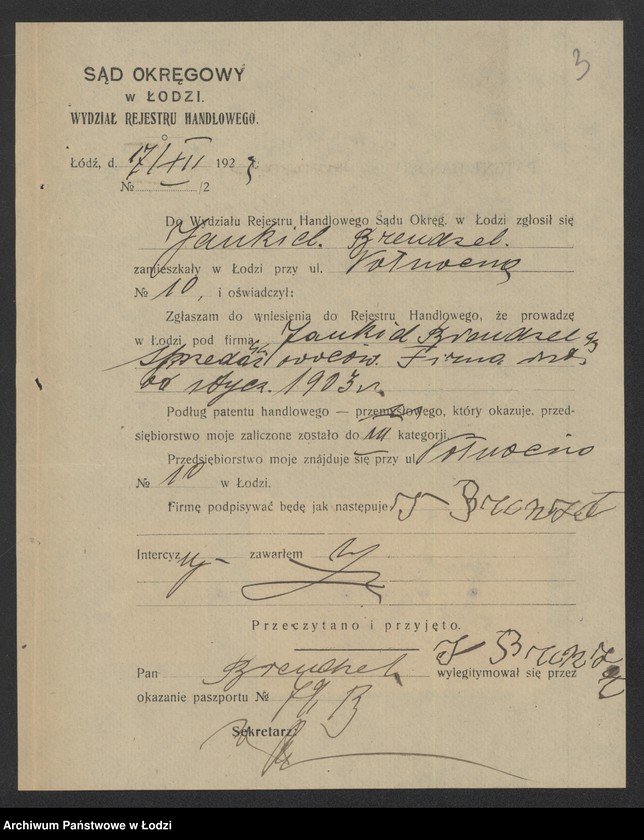 3
SĄD OKRĘGOWY
w ŁODZI.
WYDZIAŁ REJESTRU HANDLOWEGO.
Łódź, d. 17/XII 1923 r.
№ — /2
Do Wydziału Rejestru Handlowego Sądu Okręg. w Łodzi zgłosił się
Jankiel Brendzel.
zamieszkały w Łodzi przy ul. Północną
№ 10, i oświadczył:
Zgłaszam do wniesienia do Rejestru Handlowego, że prowadzę
w Łodzi pod firmą „Jankiel Brendzel"
Sprzedaż owoców. Firma istn.
od stycz. 1903 r.
Podług patentu handlowego — przemysłowego, który okazuje, przed-
siębiorstwo moje zaliczone zostało do III kategorji
Przedsiębiorstwo moje znájduje się przy ul Północno
№ 10 w Łodzi.
Firmę podpisywać będę jak następuje
Intercyzy — zawarłem
Przeczytano i przyjęto.
Pan Brendzel wylegitymował się przez
okazanie paszportu №
Sekretarz:
Archiwum Państwowe w Łodzi